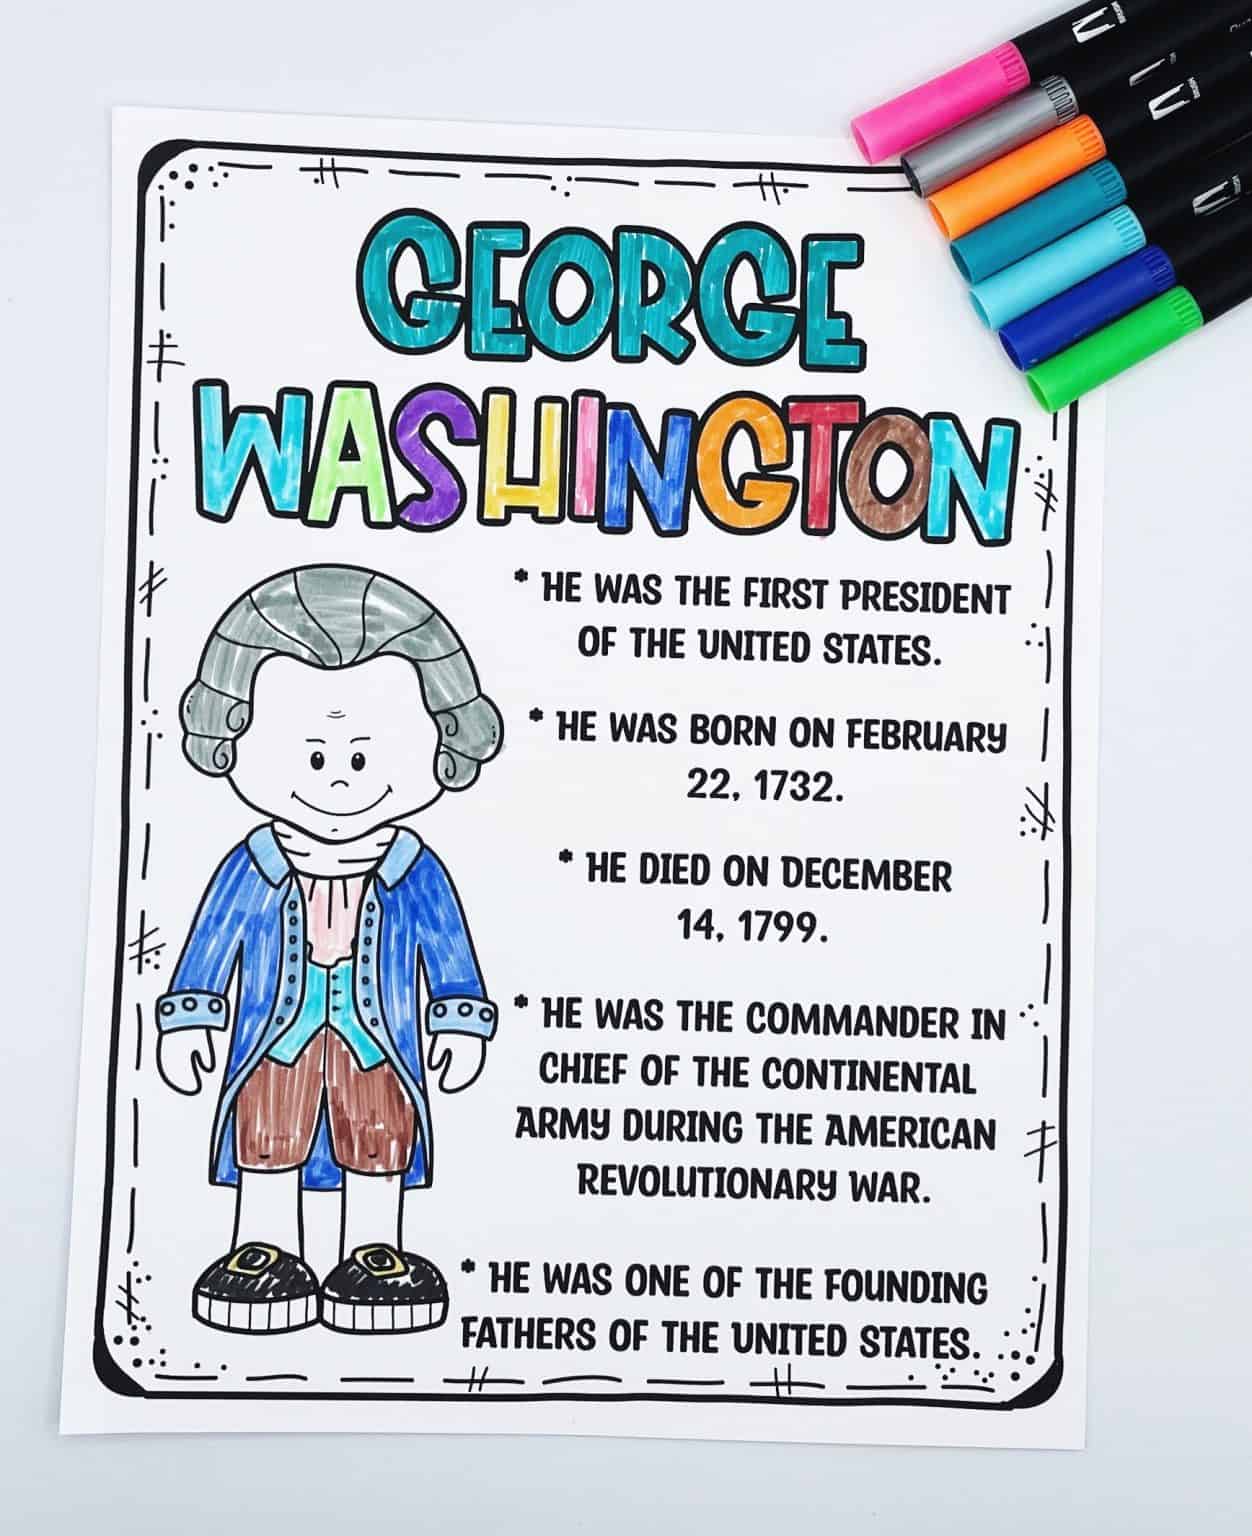 GEORGE
WASHINGTON
* HE WAS THE FIRST PRESIDENT
OF THE UNITED STATES.
* HE WAS BORN ON FEBRUARY
22, 1732.
* HE DIED ON DECEMBER
14, 1799.
* HE WAS THE COMMANDER IN
CHIEF OF THE CONTINENTAL
ARMY DURING THE AMERICAN
REVOLUTIONARY WAR.
* HE WAS ONE OF THE FOUNDING
FATHERS OF THE UNITED STATES.
BRUSH
BRUSH